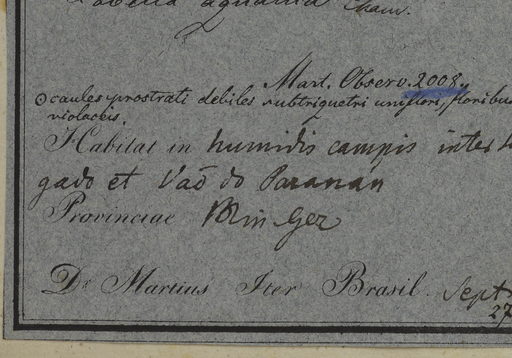 Lobelia aquatica Cham.
Mart. Observ. 2008.
caules prostrati debiles subtriquetri uniflori, floribus
violaceis.
Habitat in humidis campis inter
gado et Vaõ do Paranán
Provinciae Min Ger
Dr Martius Iter Brasil. Sept
27